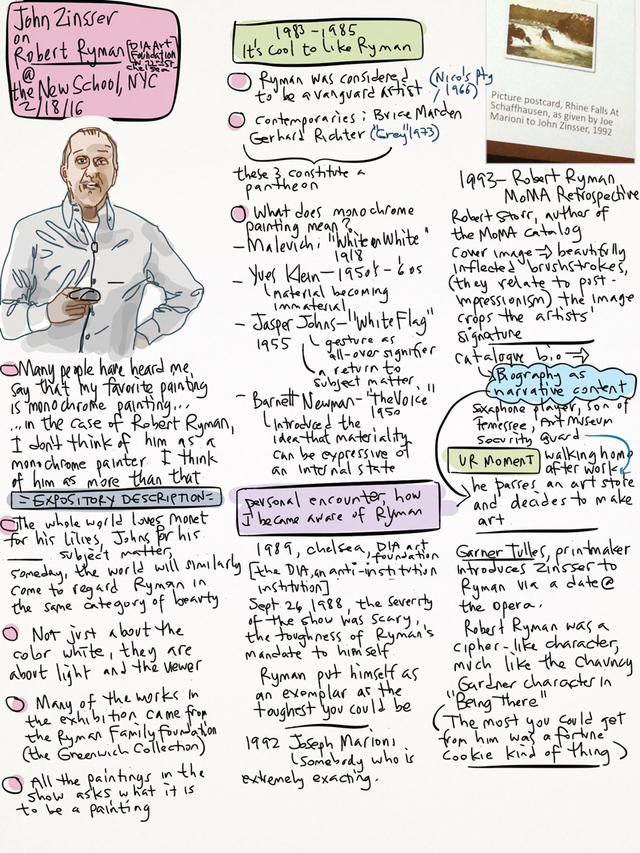 John Zinsser
on
Robert Ryman
[DIA Art
Foundation
@
the New School, NYC
2/18/16
Many people have heard me
say that my favorite painting
is monochrome painting...
...in the case of Robert Ryman,
I don't think of him as a
monochrome painter I think
of him as more than that
=EXPOSITORY DESCRIPTION=
The whole world loves Monet
for his lilies, Johns for his
subject matter,
someday, the world will similarly
come to regard Ryman in
the same category of beauty
Not just about the
color white, they are
about light and the viewer
Many of the works in
the exhibition came from
the Ryman Family Foundation
(the Greenwich Collection)
All the paintings in the
show asks what it is
to be a painting
1983-1985
It's cool to like Ryman
Ryman was considered
to be a vanguard artist
(Nico's Ptg
1966)
contemporaries: Brice Marden
Gerhard Richter ("Grey" 1973)
these 3 constitute a
pantheon
What does monochrome
painting mean?
- Malevich: "White on White"
1918
- Yves Klein - 1950s - 60s
material becoming
immaterial
- Jasper Johns - "White Flag"
1955
gesture as
all-over signifier
a return to
subject matter
- Barnett Newman - "The Voice"
1950
Introduced the
idea that materiality
can be expressive of
an internal state
personal encounter, how
I became aware of Ryman
1989, chelsea, DIA art
foundation
[the DIA, an anti-institution
institution]
Sept 26 1988, the severity
of the show was scary,
the toughness of Ryman's
mandate to himself.
Ryman put himself as
an exemplar as the
toughest you could be
1992 Joseph Marioni
somebody who is
extremely exacting.
Picture postcard, Rhine Falls At
Schaffhausen, as given by Joe
Marioni to John Zinsser, 1992
1993 - Robert Ryman
MoMA Retrospective
Robert Storr, author of
the MoMA catalog
Cover image → beautifully
inflected brushstrokes,
(they relate to post-
impressionism) the image
crops the artists'
signature
catalogue bio →
Biography as
narrative content
saxaphone player, son of
Tennessee, Art Museum
security guard
UR MOMENT
walking home
after work
he passes an art store
and decides to make
art.
Garner Tullis, printmaker
introduces Zinsser to
Ryman via a date @
the opera.
Robert Ryman was a
cipher-like character,
much like the Chauncy
Gardner character in
"Being There"
(The most you could get
from him was a fortune
cookie kind of thing)